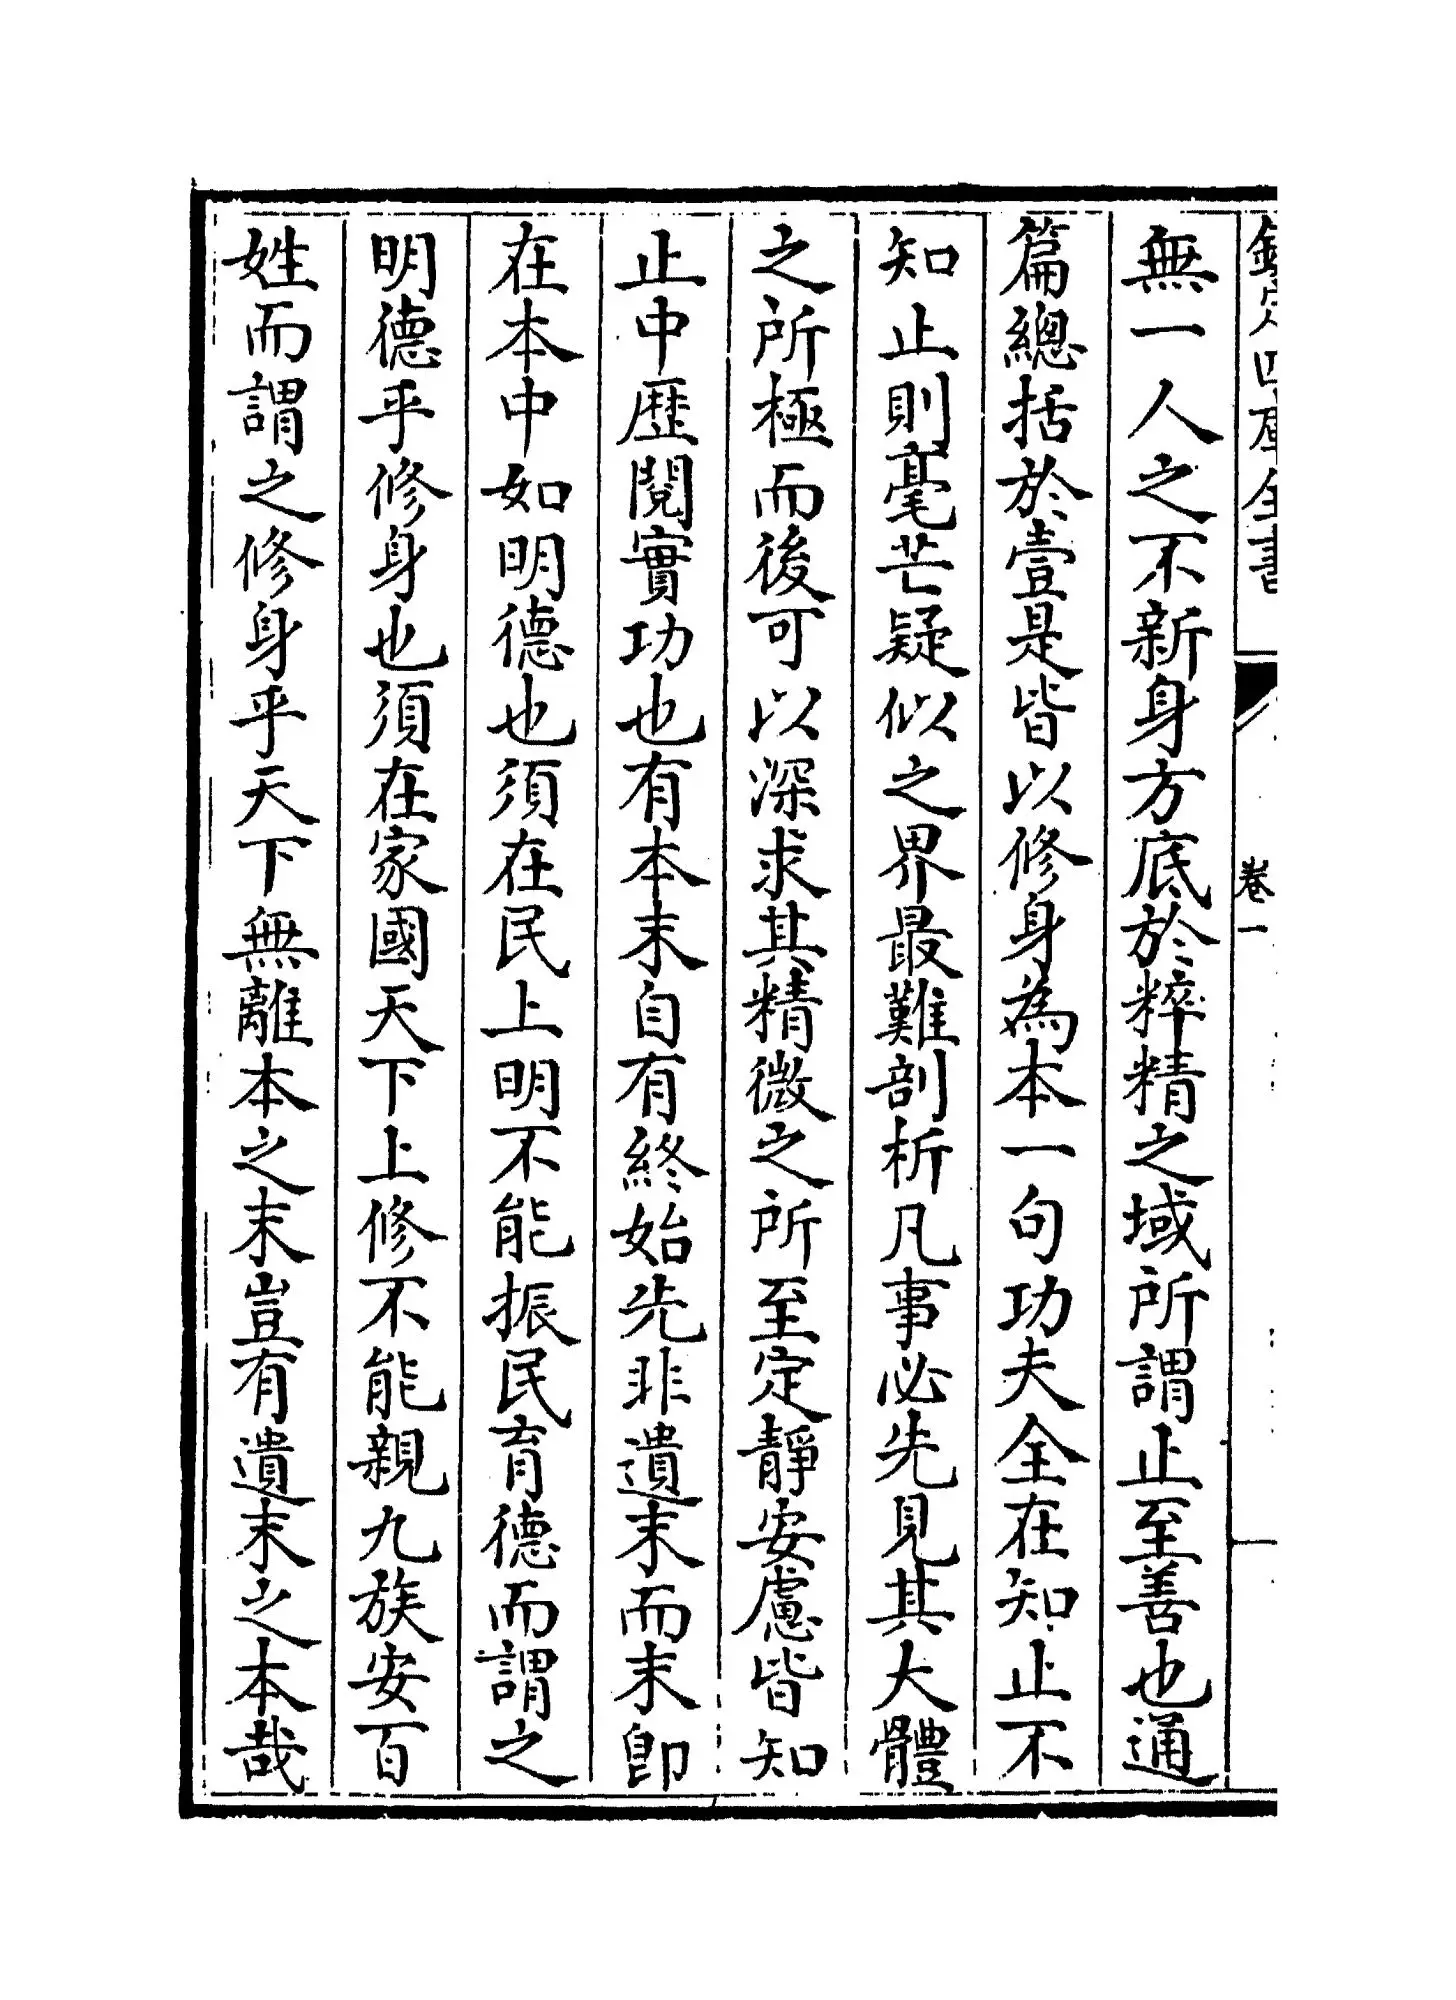 欽定四庫全書
卷一
無一人之不新身方底於粹精之域所謂止至善也通
篇總括於壹是皆以修身為本一句功夫全在知止不
知止則毫芒疑似之界最難剖析凡事必先見其大體
之所極而後可以深求其精微之所至定靜安慮皆知
止中歷閱實功也有本末自有終始先非遺末而末即
在本中如明德也須在民上明不能振民育德而謂之
明德乎修身也須在家國天下上修不能親九族安百
姓而謂之修身乎天下無離本之末豈有遺末之本哉